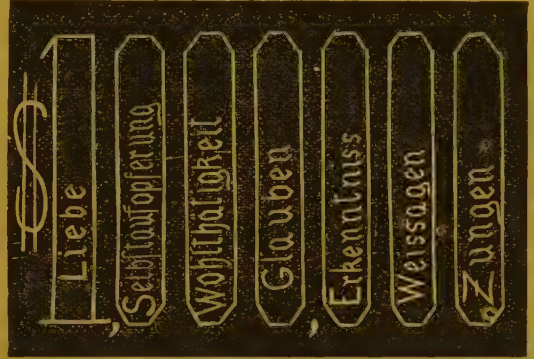 $1,
Liebe
Selbſtaufopferung
Wohlthätigkeit
Glauben,
Erkenntniss
Weissagen
Zungen